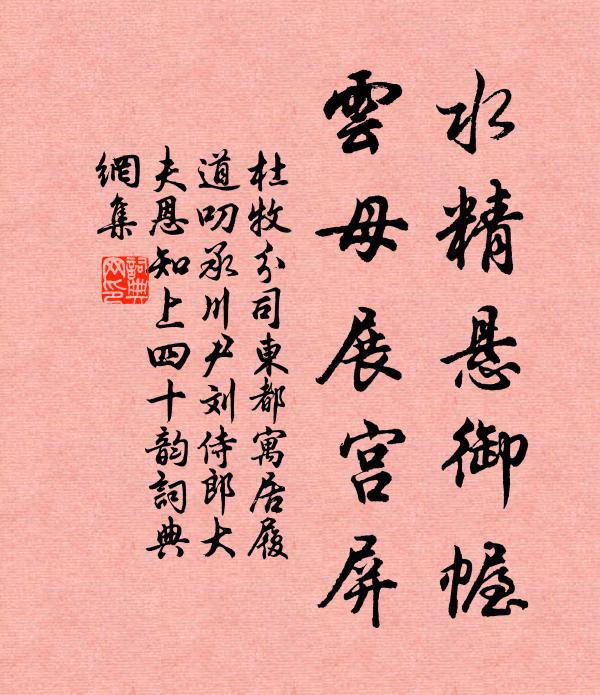 水精悬御幄
雲母展宫屏
杜牧分司東都寓居履
道叨承川尹刘侍郎大
夫恩知上四十韵詞典
網集
詞典網印